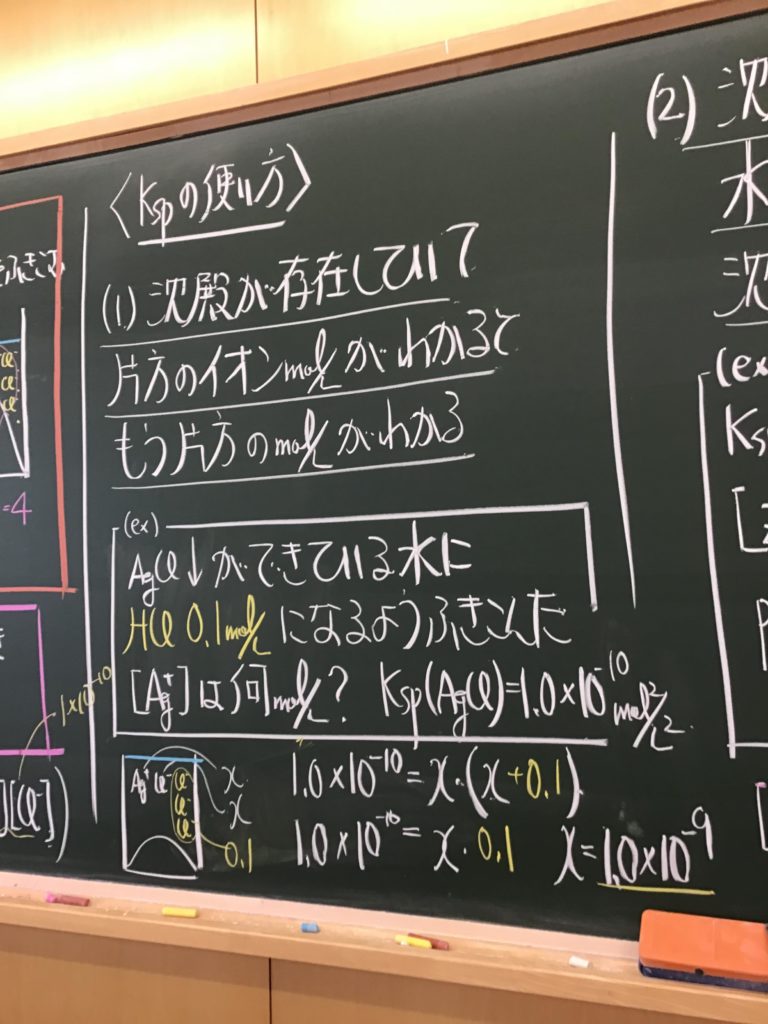 ふきこ
Cl⁻
Cl⁻
Cl⁻
=4
1×10⁻¹⁰
][Cl⁻])
〈Kspの使い方〉
(1) 沈殿が存在していて
片方のイオンmol/Lがわかると
もう片方のmol/Lがわかる
(ex)
AgCl↓ができている水に
HCl 0.1mol/Lになるようふきこんだ
[Ag⁺]は何mol/L? Ksp(AgCl)=1.0×10⁻¹⁰ mol²/L²
Ag⁺ Cl⁻ Cl⁻ x
Cl⁻ x
Cl⁻ 0.1
1.0×10⁻¹⁰=x・(x+0.1)
1.0×10⁻¹⁰=x・0.1 x=1.0×10⁻⁹
(2) 沈
水
沈
(ex
Ks
[
[